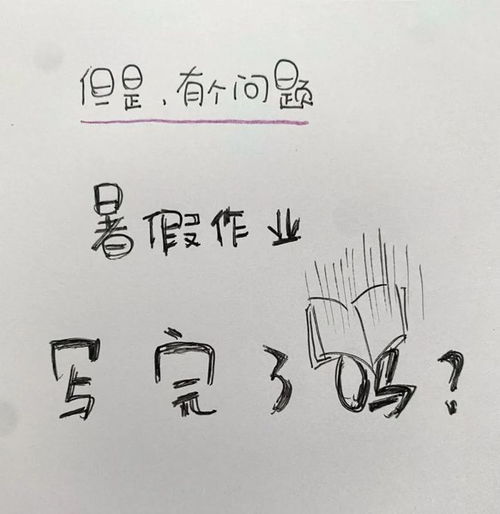 但是,有个问题
暑假作业
写完了吗?